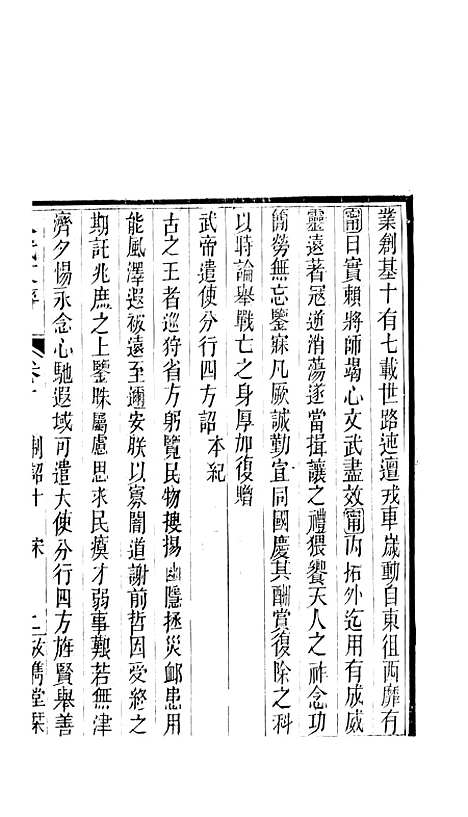 業創基十有七載世路迍邅戎車歲動自東徂西靡有
甯日實賴將帥竭心文武盡效甯內拓外迄用有成威
靈遠著寇逆消蕩遂當揖讓之禮猥饗天人之祚念功
簡勞無忘鑒寐凡厥誠勤宜同國慶其酬賞復除之科
以時論舉戰亡之身厚加復贈
武帝遣使分行四方詔本紀
古之王者巡狩省方躬覽民物搜揚幽隱拯災卹患用
能風澤遐被遠至邇安朕以寡闇道謝前哲因受終之
期託兆庶之上鑒昧屬慮思求民瘼才弱事艱若無津
濟夕惕永念心馳遐域可遣大使分行四方旌賢舉善
制詔十 宋 二 攸雋堂栞